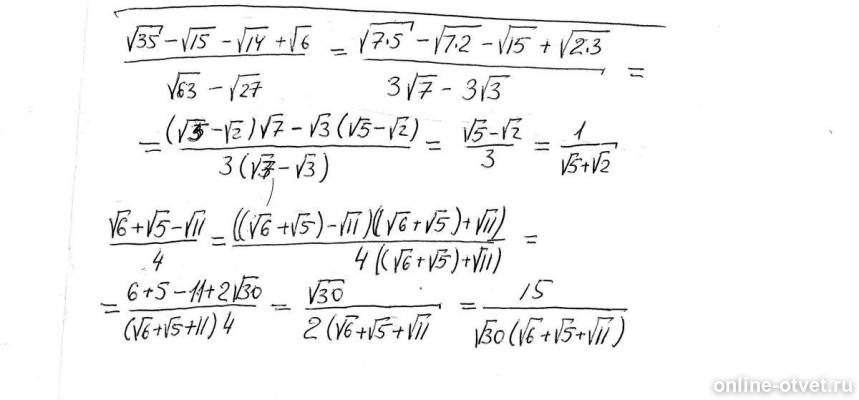 (√35 - √15 - √14 + √6) / (√63 - √27) = (√7·5 - √7·2 - √15 + √2·3) / (3√7 - 3√3) =
= ((√5 - √2)√7 - √3(√5 - √2)) / (3(√7 - √3)) = (√5 - √2) / 3 = 1 / (√5 + √2)
(√6 + √5 - √11) / 4 = (((√6 + √5) - √11)((√6 + √5) + √11)) / (4((√6 + √5) + √11)) =
= (6 + 5 - 11 + 2√30) / ((√6 + √5 + 11)4) = √30 / (2(√6 + √5 + √11) = 15 / (√30(√6 + √5 + √11))
online-otvet.ru